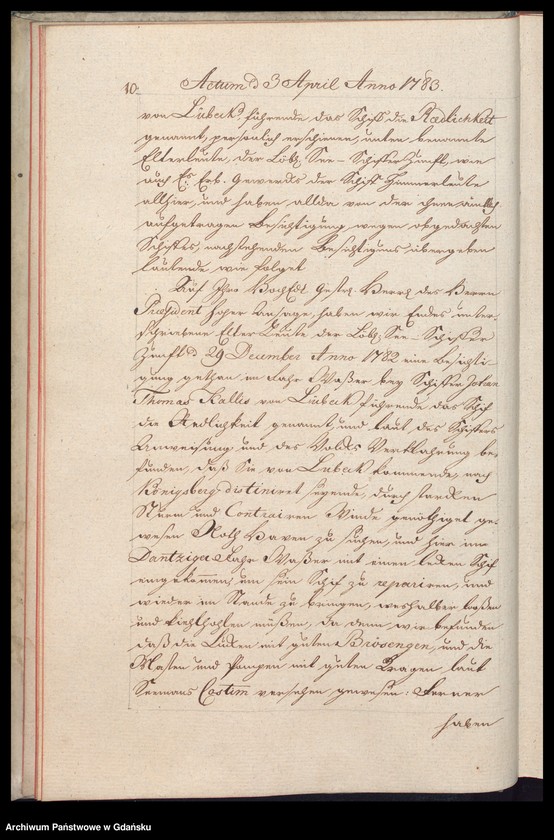 10.
Actum d 3 April Anno 1783.
von Lübeck, führende das Schiff die Redlichkeit
genannt, persönlich erschienen, unten benannte
Elterleute, der Löbl. See-Schiffer Zunft, wie
auch E. Erb. Gewercks der Schiff Zimmerleute
allhier, und haben allda von der ihnen
aufgetragen Besichtigung wegen obgedachten
Schiffes, nachstehenden Besichtigungs übergeben
lautende wie folget
Auf Ihro HochEdl. Gestr. Herrl. des Herrn
Præsident hoher Ansage, haben wir Endes unter-
schriebene Elter Leute der Löbl. See-Schiffer
Zunft d 29 December Anno 1782 eine Besichti-
gung gethan, im Fahr Waßer bey Schiffer Johan
Thomas Kallis von Lübeck führende das Schif
die Redlichkeit genannt, und laut des Schiffers
Anweisung und des Volcks Verklahrung be-
funden, daß Sie von Lubeck kommende, nach
Königsberg distiniret seyende, durch starcken
Sturm und Contrairen Winde genöthiget ge-
wesen Noth Haven zu suchen, und hier im
Dantziger Fahr Waßer mit einen lecken Schif
eingekommen, um sein Schif zu repariren, und
wieder im Stande zu bringen, weshalber loßen
und kielhohlen müßen, da denn wir befunden
daß die Lücken mit guten Prösengen, und die
Masten und Pumpen mit guten Kragen, laut
Seemans Costim versehen gewesen: Ferner
haben
Archiwum Państwowe w Gdańsku